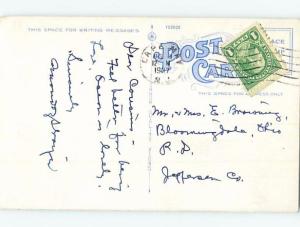 THIS SPACE FOR WRITING MESSAGES
POST
CARD
THIS SPACE FOR ADDRESS ONLY
Dear Cousins:-
Feel better for being
here, Ocean is lovely.
Sincerely
Mr. & Mrs. E. Browning,
Bloomingdale, Ohio
R.D.
Jefferson Co.